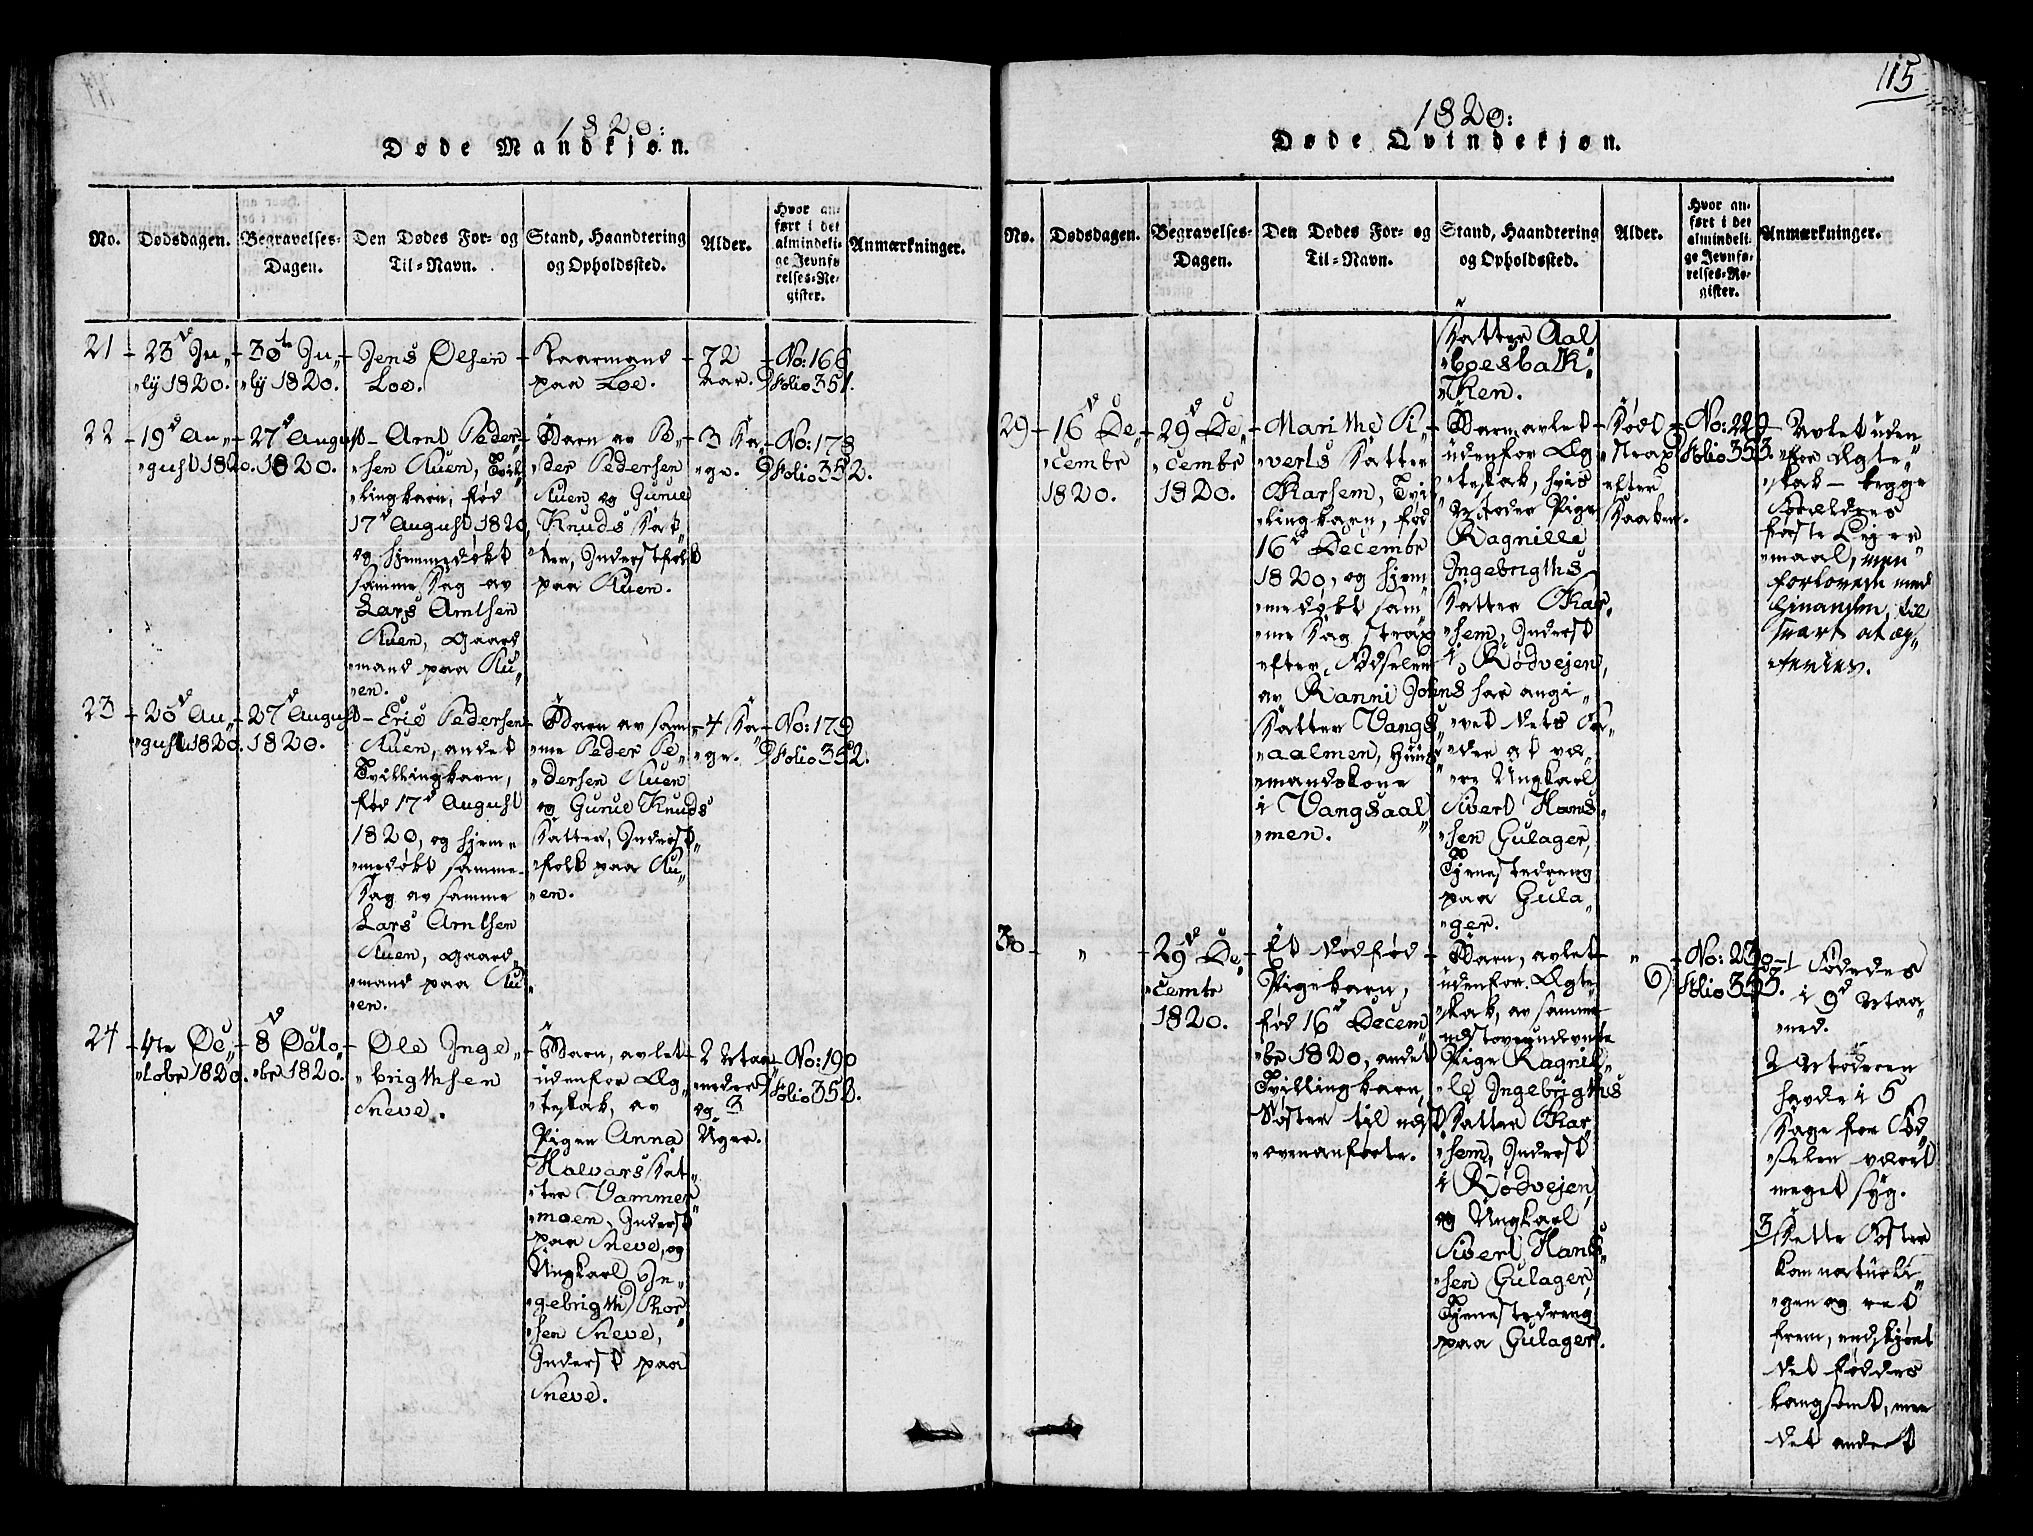 115
1820:
Døde Mandkjøn.
No.
Dødsdagen.
Begravelses-
Dagen.
Den Dødes For- og
Til-Navn.
Stand, Haandtering
og Opholdssted.
Alder.
Hvor an-
ført i det
almindeli-
ge Jevnfø-
relses-Re-
gister.
Anmærkninger.
21
23d Ju„
„ly 1820.
30te Ju„
„ly 1820.
Jens Olsen
Loe.
Kaarmand
paa Loe.
72
Aar.
No: 166
Folio 351.
22
19d Au„
„gust 1820.
27d August
1820.
Arnt Peder„
„sen Ruen, Tvil„
„lingbarn, fød
17d August 1820,
og hjemmedøbt
samme Dag av
Lars Arntsen
Ruen, Gaard„
„mand paa Ru„
„en.
Barn av Pe„
„der Pedersen
Ruen og Gurue
Knuds Dat„
„ter, Inderstfolk
paa Ruen.
3 Da„
„ge.
No: 178
Folio 352.
23
20d Au„
„gust 1820.
27d August
1820.
Eric Pedersen
Ruen, andet
Tvillingbarn,
fød 17d August
1820, og hjem„
„medøbt samme
Dag av samme
Lars Arntsen
Ruen, Gaard„
„mand paa Ru„
„en.
Barn av sam„
„me Peder Pe„
„dersen Ruen
og Gurue Knuds
Datter, Inderst„
„folk paa Ru„
„en.
4 Da„
„ge.
No: 179
Folio 352.
24
1te Oc„
„tobr 1820.
8d Octo„
„br 1820.
Ole Inge„
„brigthsen
Sneve.
Barn, avlet
udenfor Æg„
„teskab, av
Pigen Anna
Halvars Dat„
„ter Vammer„
„moen, Inderst
paa Sneve, og
Ungkarl In„
„gebrigth Thor„
„sen Sneve,
Inderst paa
Sneve.
2 Maa„
„neder
og 3
Uger.
No: 190
Folio 352.
1820:
Døde Qvindekjøn.
No.
Dødsdagen.
Begravelses-
Dagen.
Den Dødes For- og
Til-Navn.
Stand, Haandtering
og Opholdssted.
Alder.
Hvor an-
ført i det
almindeli-
ge Jevnfø-
relses-Re-
gister.
Anmærkninger.
Datter Aal„
„boesbak„
„ken.
29
16d De„
„cembr
1820.
29d De„
„cembr
1820.
Marithe Si„
„verts Datter
Kharsem, Tvil„
„lingbarn, fød
16d Decembr
1820, og hjem„
„medøbt sam„
„me Dag strax
efter Fødselen
av Ranni Johns
Datter Vangs„
„aalmen, Huus„
„mandskone
i Vangsaal„
„men.
Barn avlet
udenfor Æg„
„teskab, hvis
Moder Pige
Ragnille
Ingebrigths
Datter Khar„
„sem, Inderst
i Rødvejen,
har angi„
„vet dets Fa„
„der at væ„
„re Ungkarl
Sivert Hans„
„sen Gulager,
Tjenestedreng
paa Gula„
„ger.
Død
strax
efter
Daaben.
No: 229
Folio 353.
Avlet uden„
„for Ægte„
„skab – begge
Forældres
første Leier„
„maal, men
forlovede med
hinanden, til
snart at æg„
„tevies.
30
„
29d De„
„cembr
1820.
Et dødfød
Pigebarn,
fød 16d Decem„
„br 1820, andet
Tvillingbarn,
Søster til næst
ovenanførte.
Barn, avlet
udenfor Ægte„
„skab, av samme
nestovennævnte
Pige Ragnil„
„le Ingebrigths
Datter Khar„
„sem, Inderst
i Rødvejen,
og Ungkarl
Sivert Hans„
„sen Gulager,
Tjenestedreng
paa Gulager.
„
No: 230
Folio 353.
1 Fødedes
i 9d Maa„
„ned.
2 Moderen
havde i 5
Dage før Fød„
„selen været
meget syg.
3 Dette Foster
kom naturli„
„gen og ret
frem, endskjønt
det fødtes
langsomt, men
det andet